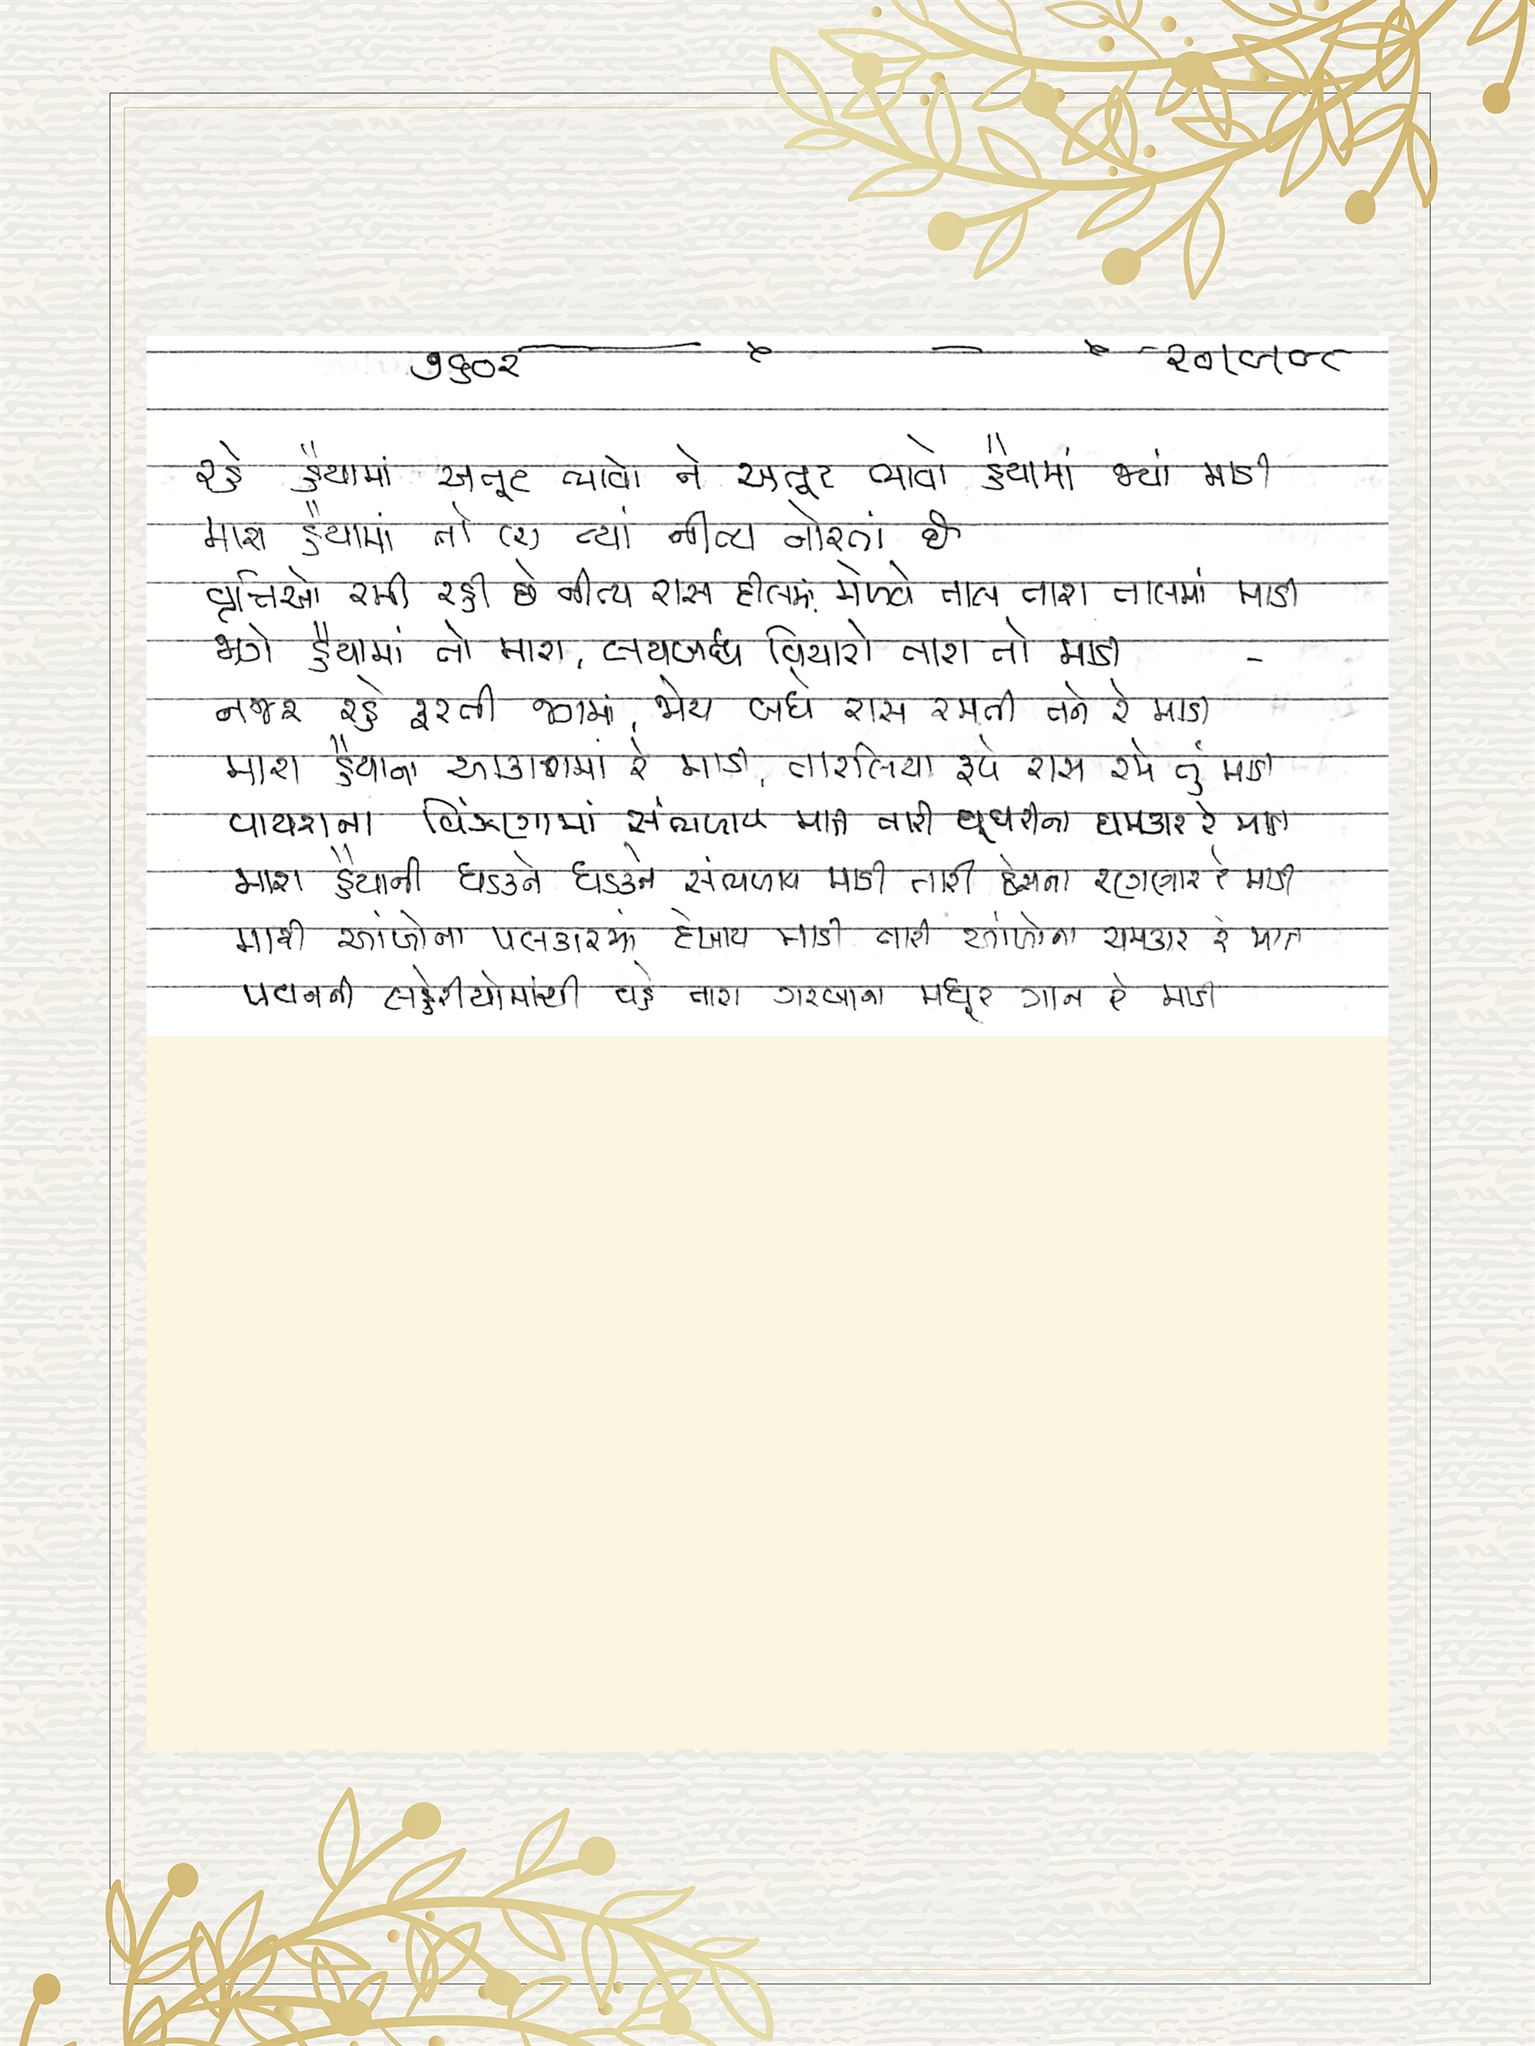 ૭૬૦૨
રહે હૈયામાં અતૂટ ભાવો ને અતૂટ ભાવો હૈયામાં જ્યાં માડી
મારા હૈયામાં તો (૨) ત્યાં નીત્ય નોરતાં છે
વૃત્તિઓ રમી રહી છે નીત્ય રાસ દીલમાં, મેળવે તાલ તારા તાલમાં માડી
જાગે હૈયામાં તો મારા, લયબદ્ધ વિચારો તારા તો માડી
નજર રહે ફરતી જગમાં, જોય બધે રાસ રમતી તને રે માડી
મારા હૈયાના આકાશમાં રે માડી, તારલિયા રૂપે રાસ રમે તું માડી
વાયરાના વિંઝણામાં સંભળાય માડી તારી ઘૂઘરીના ઘમકાર રે માડી
મારા હૈયાની ધડકને ધડકને સંભળાય માડી તારી રણકાર રે માડી
મારી આંખોના પલકારમાં દેખાય માડી તારી આંખોના ચમકાર રે માડી
પવનની લહેરીયોમાંથી વહે તારા ગરબાના મધૂર ગાન રે માડી